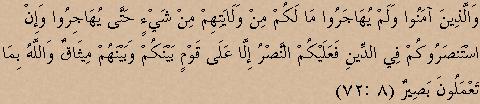 وَالَّذِينَ آمَنُوا وَلَمْ يُهَاجَرُوا مَا لَكُمْ مِنْ وَلَايَتِهِمْ مِنْ شَيْءٍ حَتَّى يُهَاجِرُوا وَإِنْ
اسْتَنصَرُوكُمْ فِي الدِّينِ فَعَلَيْكُمُ النَّصْرُ إِلَّا عَلَى قَوْمٍ بَيْنَكُمْ وَبَيْنَهُمْ مِيثَاقٌ وَاللَّهُ بِمَا
تَعْمَلُونَ بَصِيرٌ (٨ :٧٢)